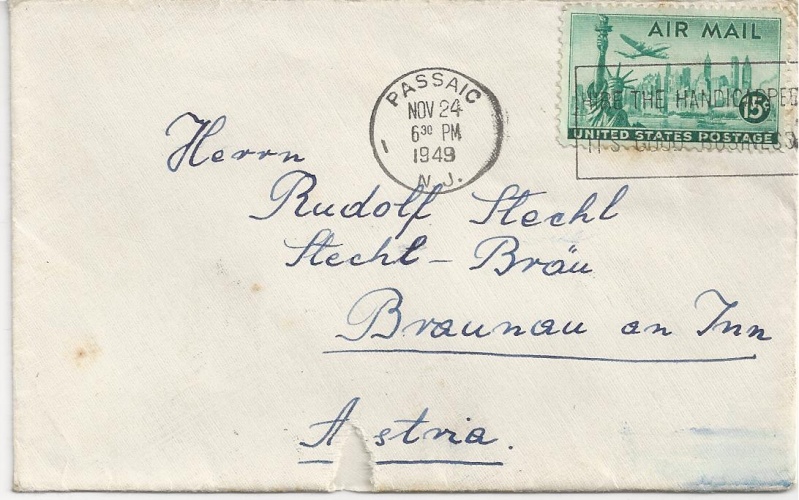 AIR MAIL
15¢
UNITED STATES POSTAGE
HIRE THE HANDICAPPED
IT'S GOOD BUSINESS
PASSAIC
NOV 24
6 30 PM
1949
N.J.
1
Herrn
Rudolf Stechl
Stechl-Bräu
Braunau an Inn
A stria.